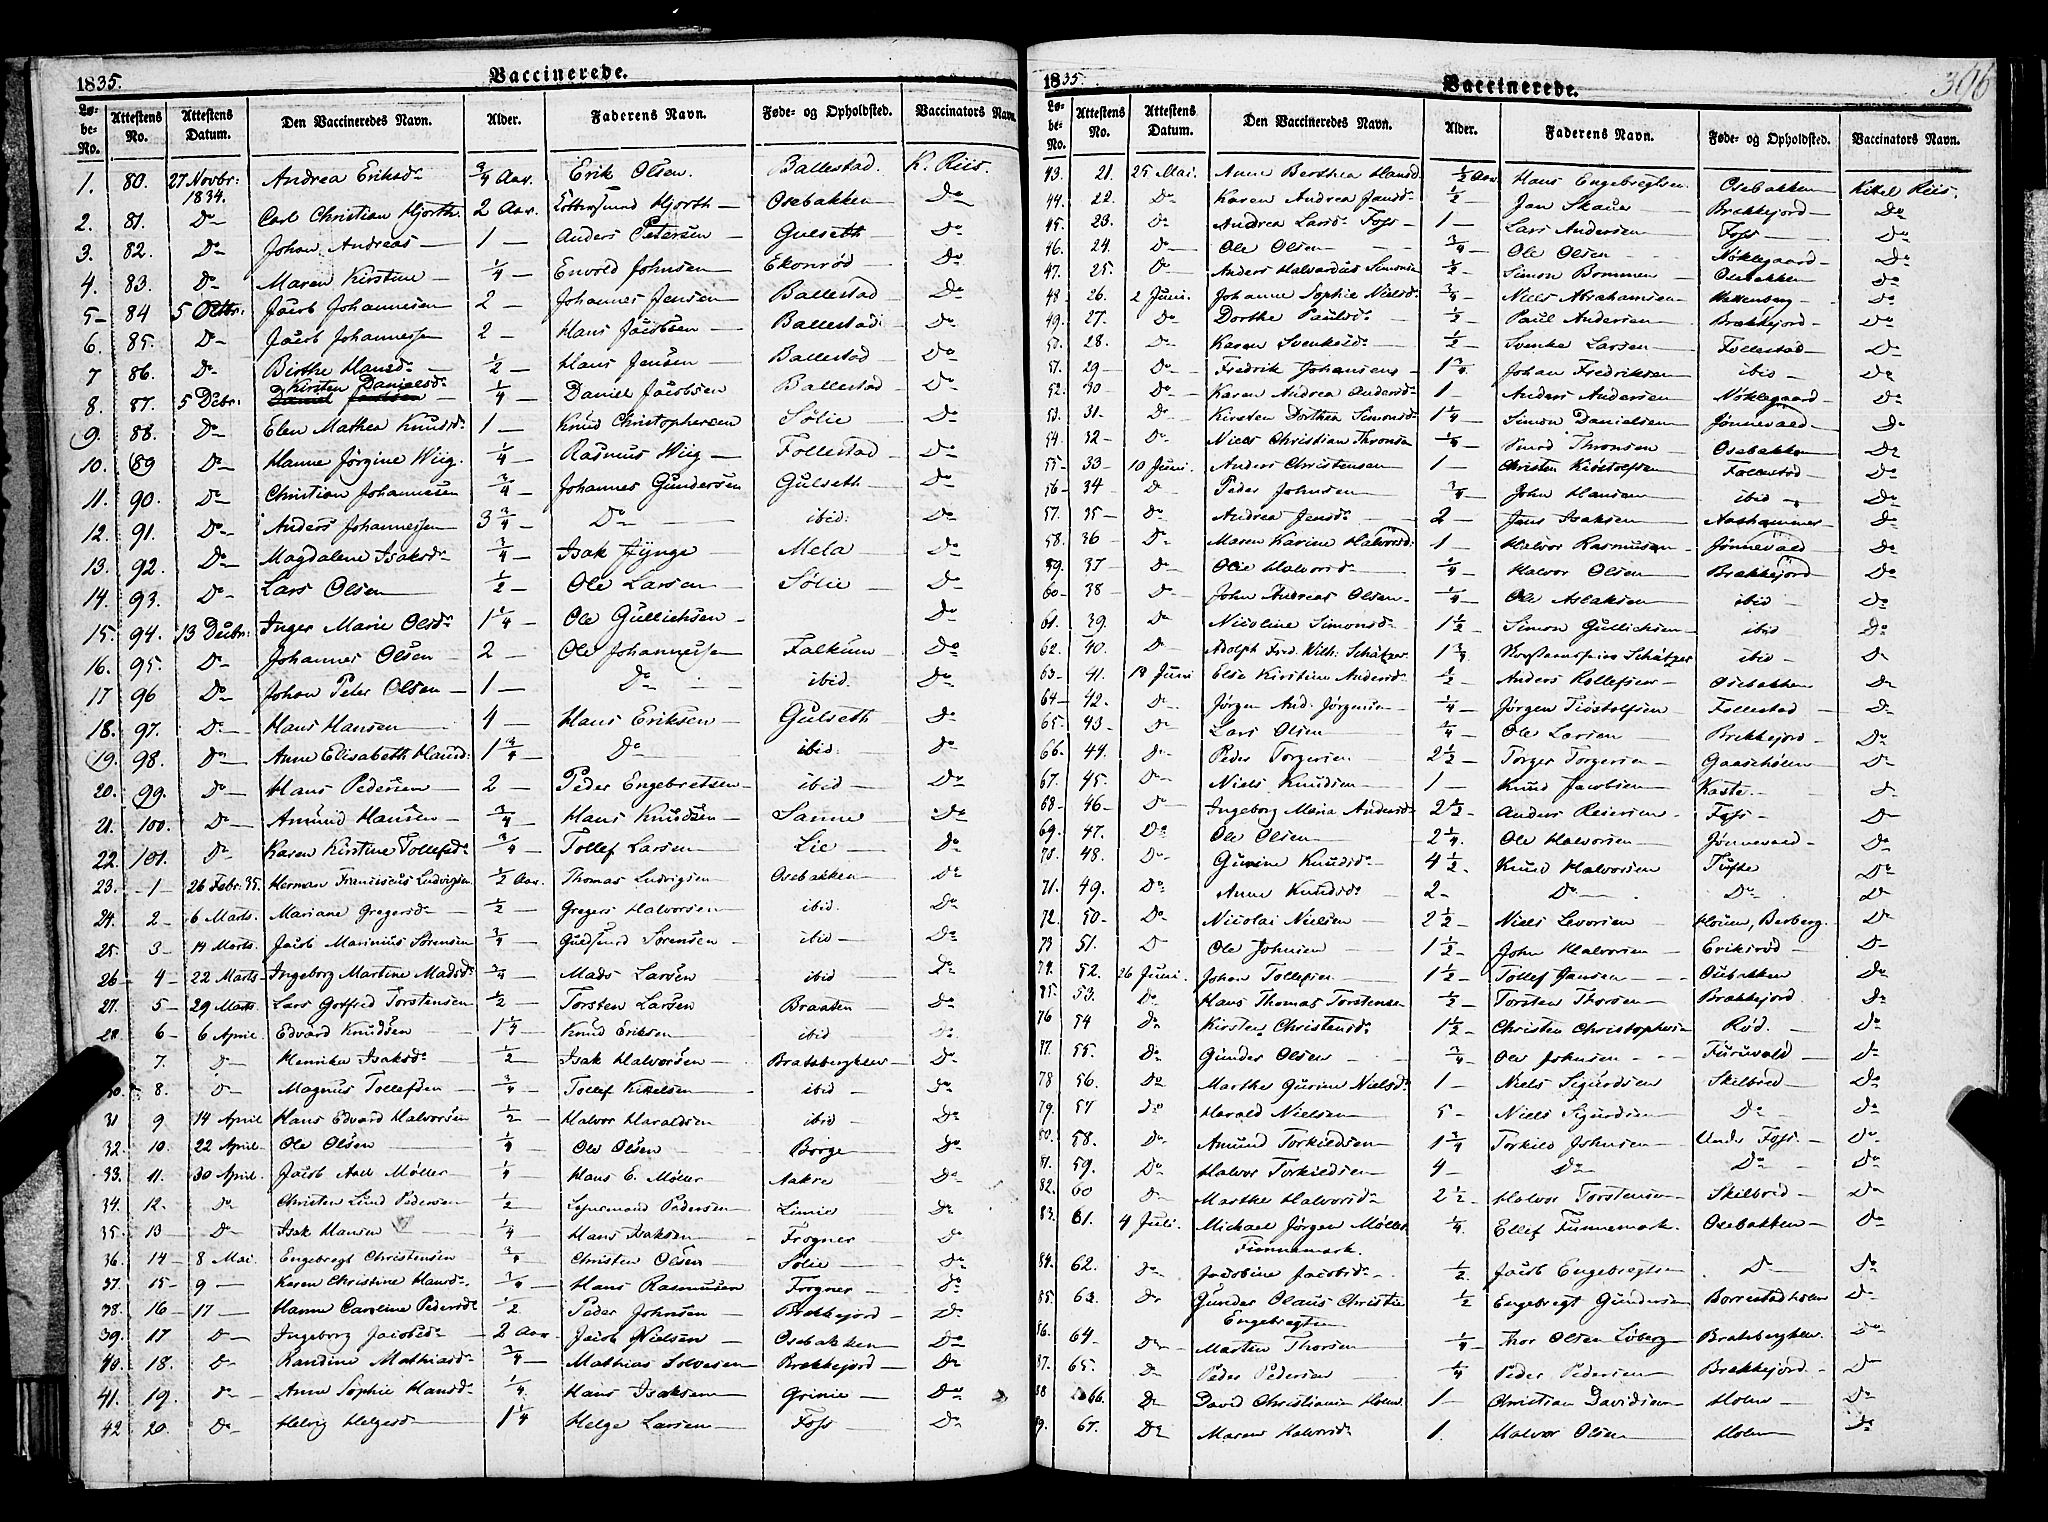 1835.
Vaccinerede.
Lø-be-No. Attestens No. Attestens Datum. Den Vaccineredes Navn. Alder. Faderens Navn. Føde- og Opholdsted. Vaccinators Navn.
1. 80. 27 Novbr: 1834. Andrea Eriksdr 3/4 Aar. Erik Olsen. Ballestad. K. Riis.
2. 81. Do Carl Christian Hjorth. 2 Aar. Hjorth Osebakken Do
3. 82. Do Johan Andreas 1 Anders Petersen Gulseth Do
4. 83. Do Maren Kirstine 1/4 Envold Johnsen Ekonrød Do
5 84 5 Octbr: Jacob Johannesen 2 Johannes Jensen Ballestad Do
6. 85. Do Jacob Johannesen 2 Hans Jacobsen Ballestad Do
7 86. Do Birthe Hansd 1/2 Hans Jensen Ballestad Do
8. 87. 5 Decbr: Kirsten Danielsdr 1/4 Daniel Jacobsen Ballestad Do
9. 88. Do Elen Mathea Knudsd 1 Knud Christophersen Sølie Do
10. 89 Do Hanne Jørgine Wiig. 1/4 Rasmus Wiig Follestad Do
11. 90. Do Christian Johannesen 3/4 Johannes Gundersen Gulseth Do
12. 91. Do Anders Johannessen 3 3/4 Do ibid: Do
13. 92. Do Magdalene Isaksdr 3/4 Isak Mela Do
14. 93. Do Lars Olsen 1/2 Ole Larsen Sølie Do
15. 94. 13 Decbr: Inger Marie Olsdr 1 1/4 Ole Gullichsen Do
16. 95. Do Johannes Olsen 2 Ole Johannessen Falkum Do
17 96 Do Johan Peter Olsen 1 Do ibid. Do
18. 97. Do Hans Hansen 4 Hans Eriksen Gulseth Do
19. 98. Do Anne Elisabeth Hansd: 1 3/4 Do ibid: Do
20. 99. Do Hans Pedersen 2 Peder Engebretsen ibid Do
21. 100. Do Amund Hansen 3/4 Hans Knudsen Sanne Do
22. 101. Do Karen Kirstine Tollefsdr 3/4 Tollef Larsen Lie Do
23. 1 26 Febr: 35. Herman Franciscus Ludvigsen 1/2 Aar. Thomas Ludvigsen Osebakken Do
24. 2 6 Marts. Mariane Gregersdr 1/2 Gregers Halvorsen ibid. Do
25. 3 14 Marts. Jacob Marinius Sørensen 3/4 Sørensen ibid Do
26 4 22 Marts Ingeborg Martine Madsdr 3/4 Mads Larsen ibid Do
27. 5 29 Marts Lars Gotfred Torstensen 1/2 Torsten Larsen Braaten Do
28 6 6 April Edvard Knudsen 1 1/4 Knud Eriksen ibid Do
7. D Henrikke Isaksdr 1/2 Isak Halvorsen Bratsbergklev Do
30. 8. D Magnus Tollefsen 3/4 Tollef Kittelsen ibid Do
31 9 14 April Hans Edvard Halvorsen 1/2 Halvor Haraldsen ibid Do
32. 10. 22 April Ole Olsen 1/4 Ole Olsen Borge Do
33. 11. 30 April Jacob Aall Møller 1/4 Hans E. Møller Aakre Do
34. 12. Do Christen Lund Pedersen 1/2 Pedersen Limie Do
35. 13 Do Isak Hansen 1/4 Hans Isaksen Frogner Do
36. 14 8 Mai Engebregt Christensen 3/4 Christen Olsen Sølie Do
37. 15 9 Karen Christine Hansdr 1/4 Hans Rasmusen Frogner Do
38. 16 17 Hanne Caroline Pedersdr 1/2 Peder Johnsen Brekkejord Do
39. 17 Do Ingeborg Jacobsdr 2 Aar Jacob Nielsen Osebakken Do
40. 18. Do Randine Mathiasdr 3/4 Mathias Solvesen Brekkejord Do
41. 19. Do Anne Sophie Hansdr 1/4 Hans Isaksen Grinie Do
42 20. Do Helvig Helgesdr 1 1/4 Helge Larsen Foss Do
1835.
Vaccinerede.
396
Lø-be-No. Attestens No. Attestens Datum. Den Vaccineredes Navn. Alder. Faderens Navn. Føde- og Opholdsted. Vaccinators Navn.
43. 21. 25 Mai. Anne Berthea Hansd 1/2 Aar Hans Engebregtsen Osebakken Kittel Riis.
44. 22. Do Karen Andrea Jansdr 1/2 Jan Skauen Brekkejord Do
45. 23. Do Andrea Larsdr Foss 1 Lars Andersen Foss Do
46. 24. Do Ole Olsen 3/4 Ole Olsen Nøklegaard Do
47. 25. Do Anders Halvardus Simonsen 1/2 Simon Bommen Osebakken Do
48 26. 2 Juni. Johanne Sophie Nielsdr 3/4 Niels Abrahamsen Do
49. 27. Do Dorthe Paulsdr Paul Andersen Brekkejord Do
50. 28. Do Karen Svenkesdr 1/2 Svenke Larsen Follestad Do
51. 29 Do Fredrik Johansens 1 3/4 Johan Fredriksen ibid Do
52. 30 Do Karen Andrea Andersdr 1 Anders Andersen Nøklegaard Do
53. 31. Do Kirsten Dorthea Simonsdr 1 1/4 Simon Danielsen Jønnevald Do
54. 32 Do Niels Christian Thronsen 1/4 Thronsen Osebakken Do
55 33 10 Juni. Anders Christensen 1 Christen Follestad Do
56 34 D Peder Johnsen 3/4 John Hansen ibid Do
57. 35 Do Andrea Jensdr 2 Jens Isaksen Aashammer Do
58. 36 Do Maren Karine Halvorsd: 1 Halvor Rasmusen Jønnevald Do
59. 37 Do Olie Halvorsdr 1/4 Halvor Olsen Brekkejord Do
60 38 Do John Andreas Olsen 1/4 Ole Aslaksen ibid Do
61. 39. Do Nicoline Simonsdr 1 1/2 Simon Gullichsen ibid Do
62. 40. Do Adolph Fred. Wilh. Schätzer 1 3/4 Schätzer ibid D
63 41. 19 Juni Else Kirstine Andersdr 1/2 Anders Rollefsen Osebakken Do
64 42. Do Jørgen And. Jørgensen 1/4 Jørgen Follestad D
65. 43 Do Lars Olsen 3/4 Ole Larsen Brekkejord Do
66. 44. Do Peder Torgersen 2 1/2 Torger Torgersen Gaasehølen Do
67. 45. Do Niels Knudsen 1 Knud Jacobsen Kaste D
68 46 Do Ingeborg Maria Andersdr 2 1/2 Anders Reiersen Foss Do
69. 47. Do Ole Olsen 2 1/4. Ole Halvorsen Jønnevald Do
70. 48. Do Gurine Knudsdr 4 1/2 Knud Halvorsen Tufte Do
71. 49. Do Anne Knudsdr 2 Do Do D
72. 50 Do Nicolai Nielsen 2 1/2 Niels Levorsen D
73 51. D Ole Johnsen 1 1/2 John Halvorsen Eriksrød D
74. 52. 26 Juni. Johan Tollefsen 1 1/2 Tollef Jansen Osebakken Do
75. 53. Do Hans Thomas Torstensen 1/2 Torsten Thorsen Brekkejord. Do
76 54 Do Kirsten Christensdr 1 1/2 Christen Christophersen Rød. Do
77. 55. Do Gunder Olsen 3/4 Ole Johnsen Furuvald Do
78 56. Do Marthe Gurine Nielsdr 1 Niels Sigurdsen Skilbred Do
79. 57 Do Harald Nielsen 5 Niels Sigurdsen Do Do
80. 58. Do Amund Torkildsen 1 3/4 Torkild Johnsen Under Foss. Do
81. 59. Do Halvor Torkildsen 4 Do Do Do
82. 60 Do Marthe Halvorsdr 2 1/2 Halvor Torstensen Skilbred Do
83. 61. 4 Juli. Michael Jørgen Møller Funnemark. 1/4. Ellef Funnemark. Osebakken Do
84. 62. Do Jacobine Jacobsdr 1/2 Jacob Engebregtsen Do Do
85. 63. Do Gunder Olaus Christie Engebregtsen 1/2 Engebregt Gundersen Borrestadholm Do
86. 64 Do Marten Thorsen 1/4 Thor Olsen Løberg Bratsbergklev. Do
87. 65. Do Peder Pedersen 1/4 Peder Pedersen Brekkejord Do
88 66. Do David Christiansen Holm 1 Christian Davidsen Holm Do
89. 67. Do Maren Halvorsdr 1. Halvor Olsen Holm Do